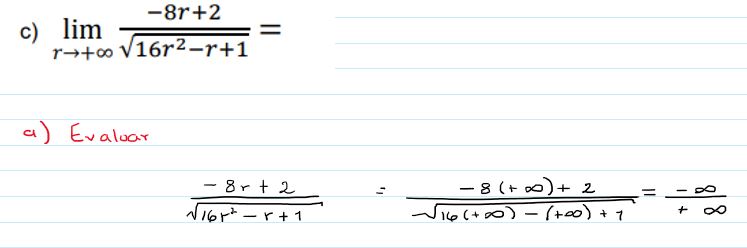 c) lim r→+∞ -8r+2 / √16r²-r+1 =
a) Evaluar
-8r + 2 / √16r² - r + 1 = -8(+∞) + 2 / √16(+∞) - (+∞) + 1 = -∞ / +∞